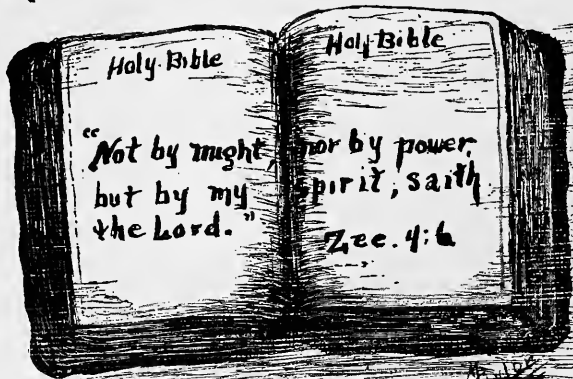 Holy Bible Holy Bible
"Not by might, nor by power,
but by my spirit, saith
the Lord."
Zec. 4:6